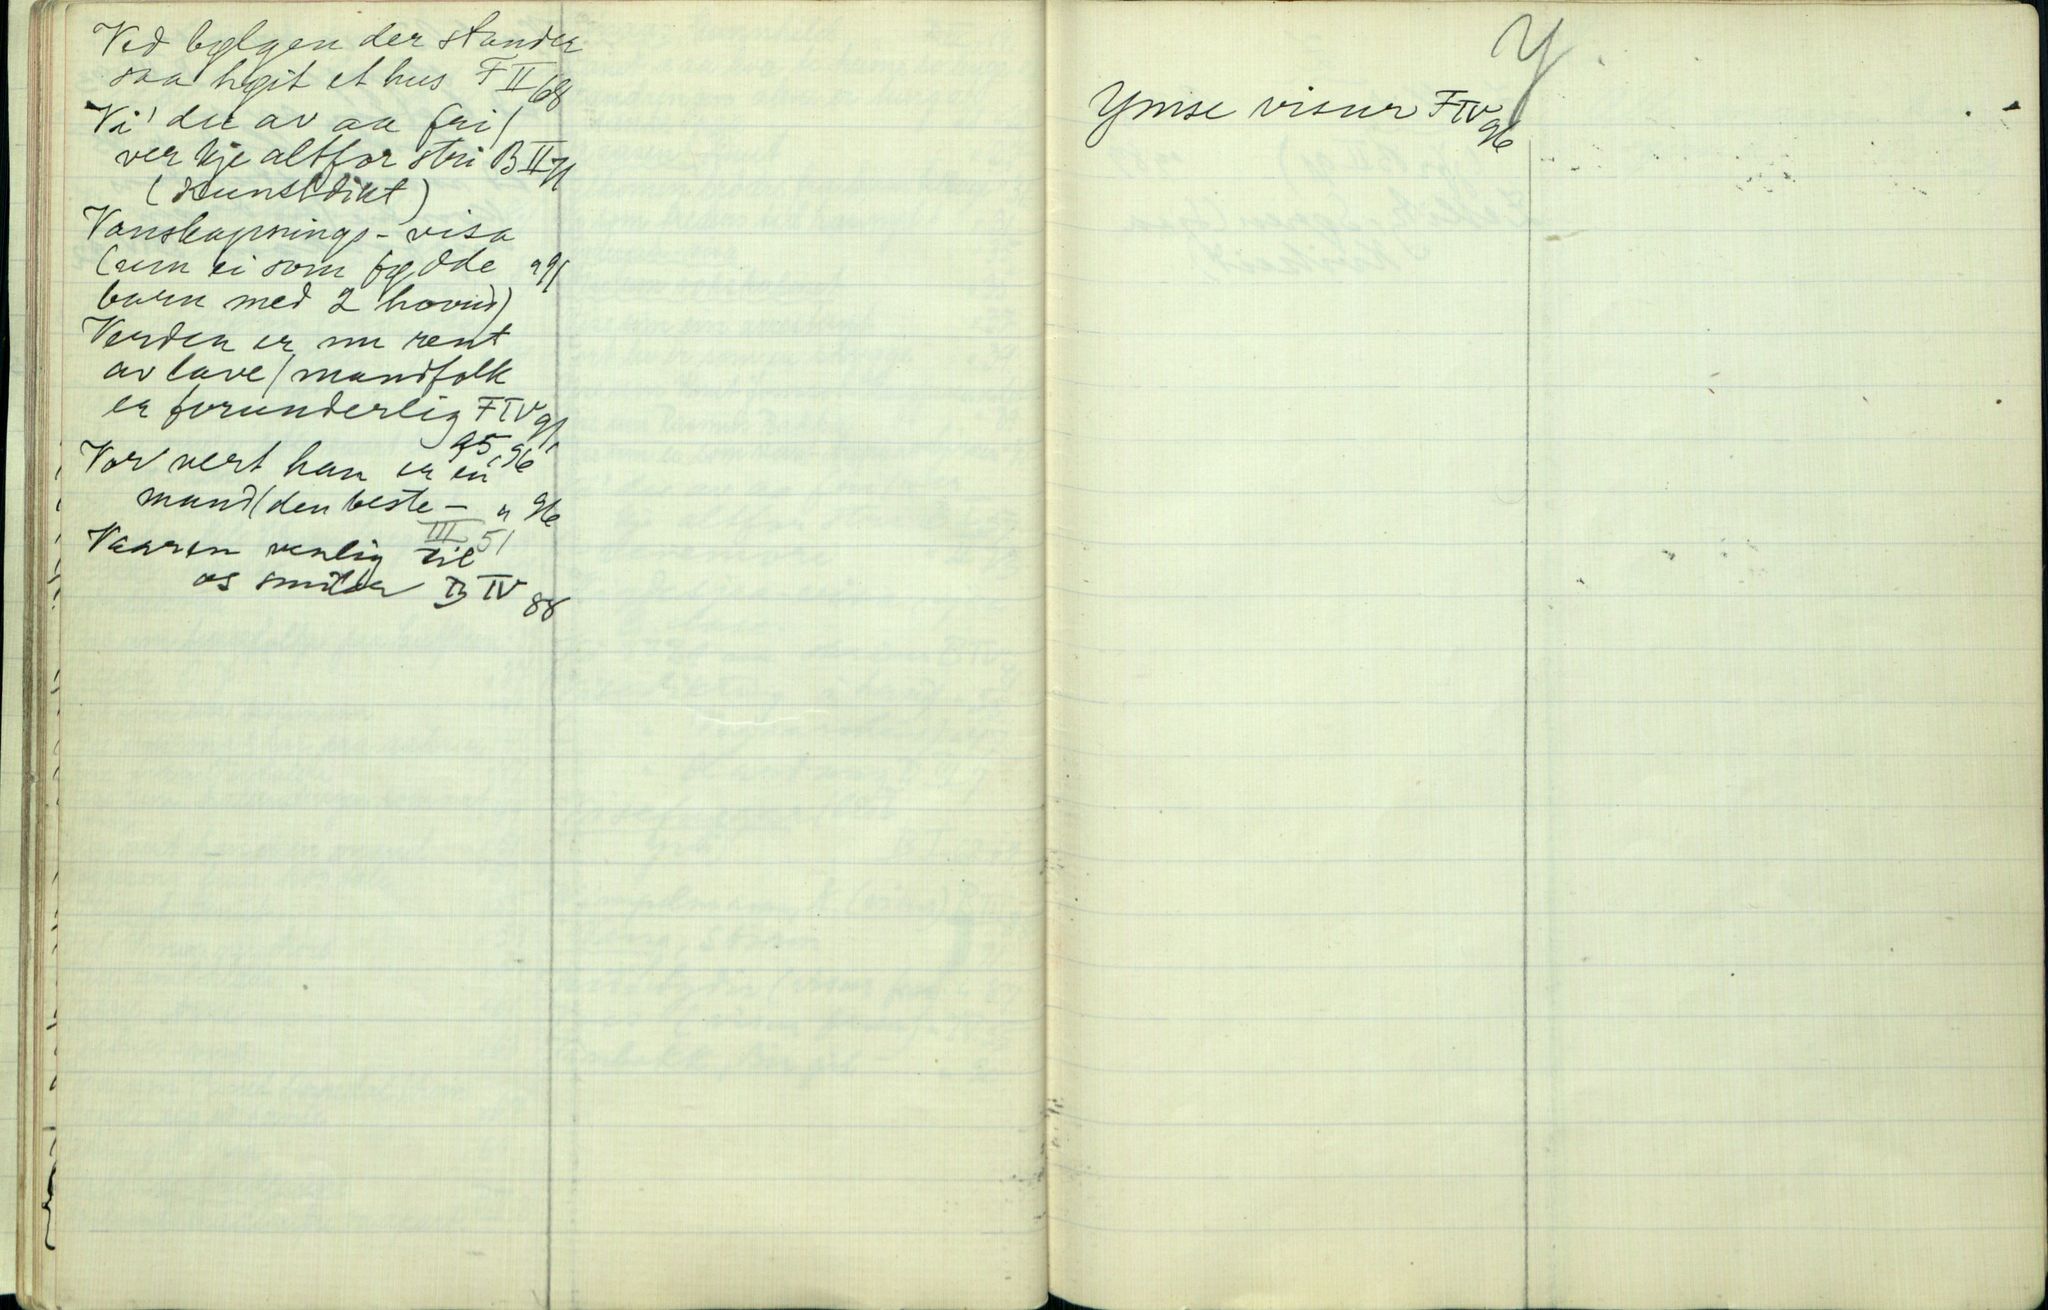 Ved bølgen der stander
saa høit et hus F II 68
Vi' du av aa fri/
ver kje altfor stri B II 71
(Kunstdikt)
Vanskapnings-visa
(um ei som fødde " 91
barn med 2 hovud)
Verden er nu rent
av lave/mandfolk
er forunderlig F IV 91
95, 96
Vor vert han er en
mand/den beste — " 96
III 51
Vaaren venlig til
os smiler B IV 88
Y.
Ymse visur F IV 96